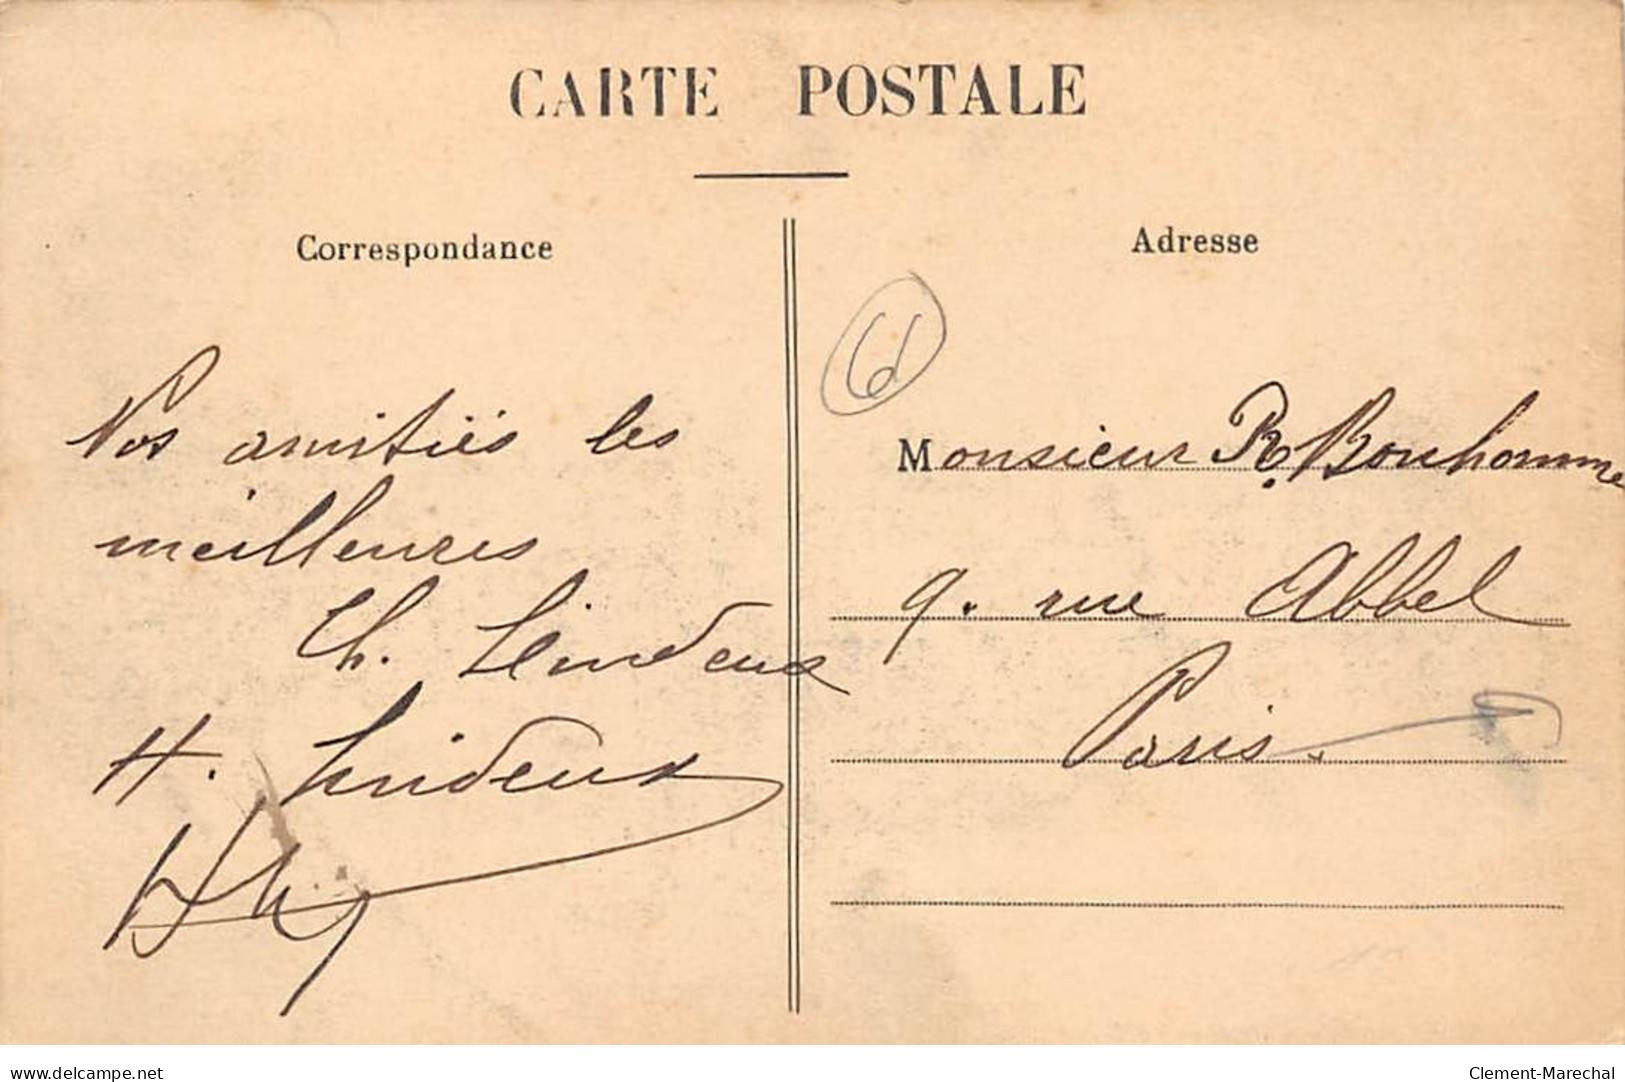 CARTE POSTALE
Correspondance
Nos amitiés les
meilleures
Ch. Lindeux
H. Lindeux
Adresse
6
Monsieur R. Bonhomme
9. rue Abbel
Paris.
delcampe.net
Clement-Marechal